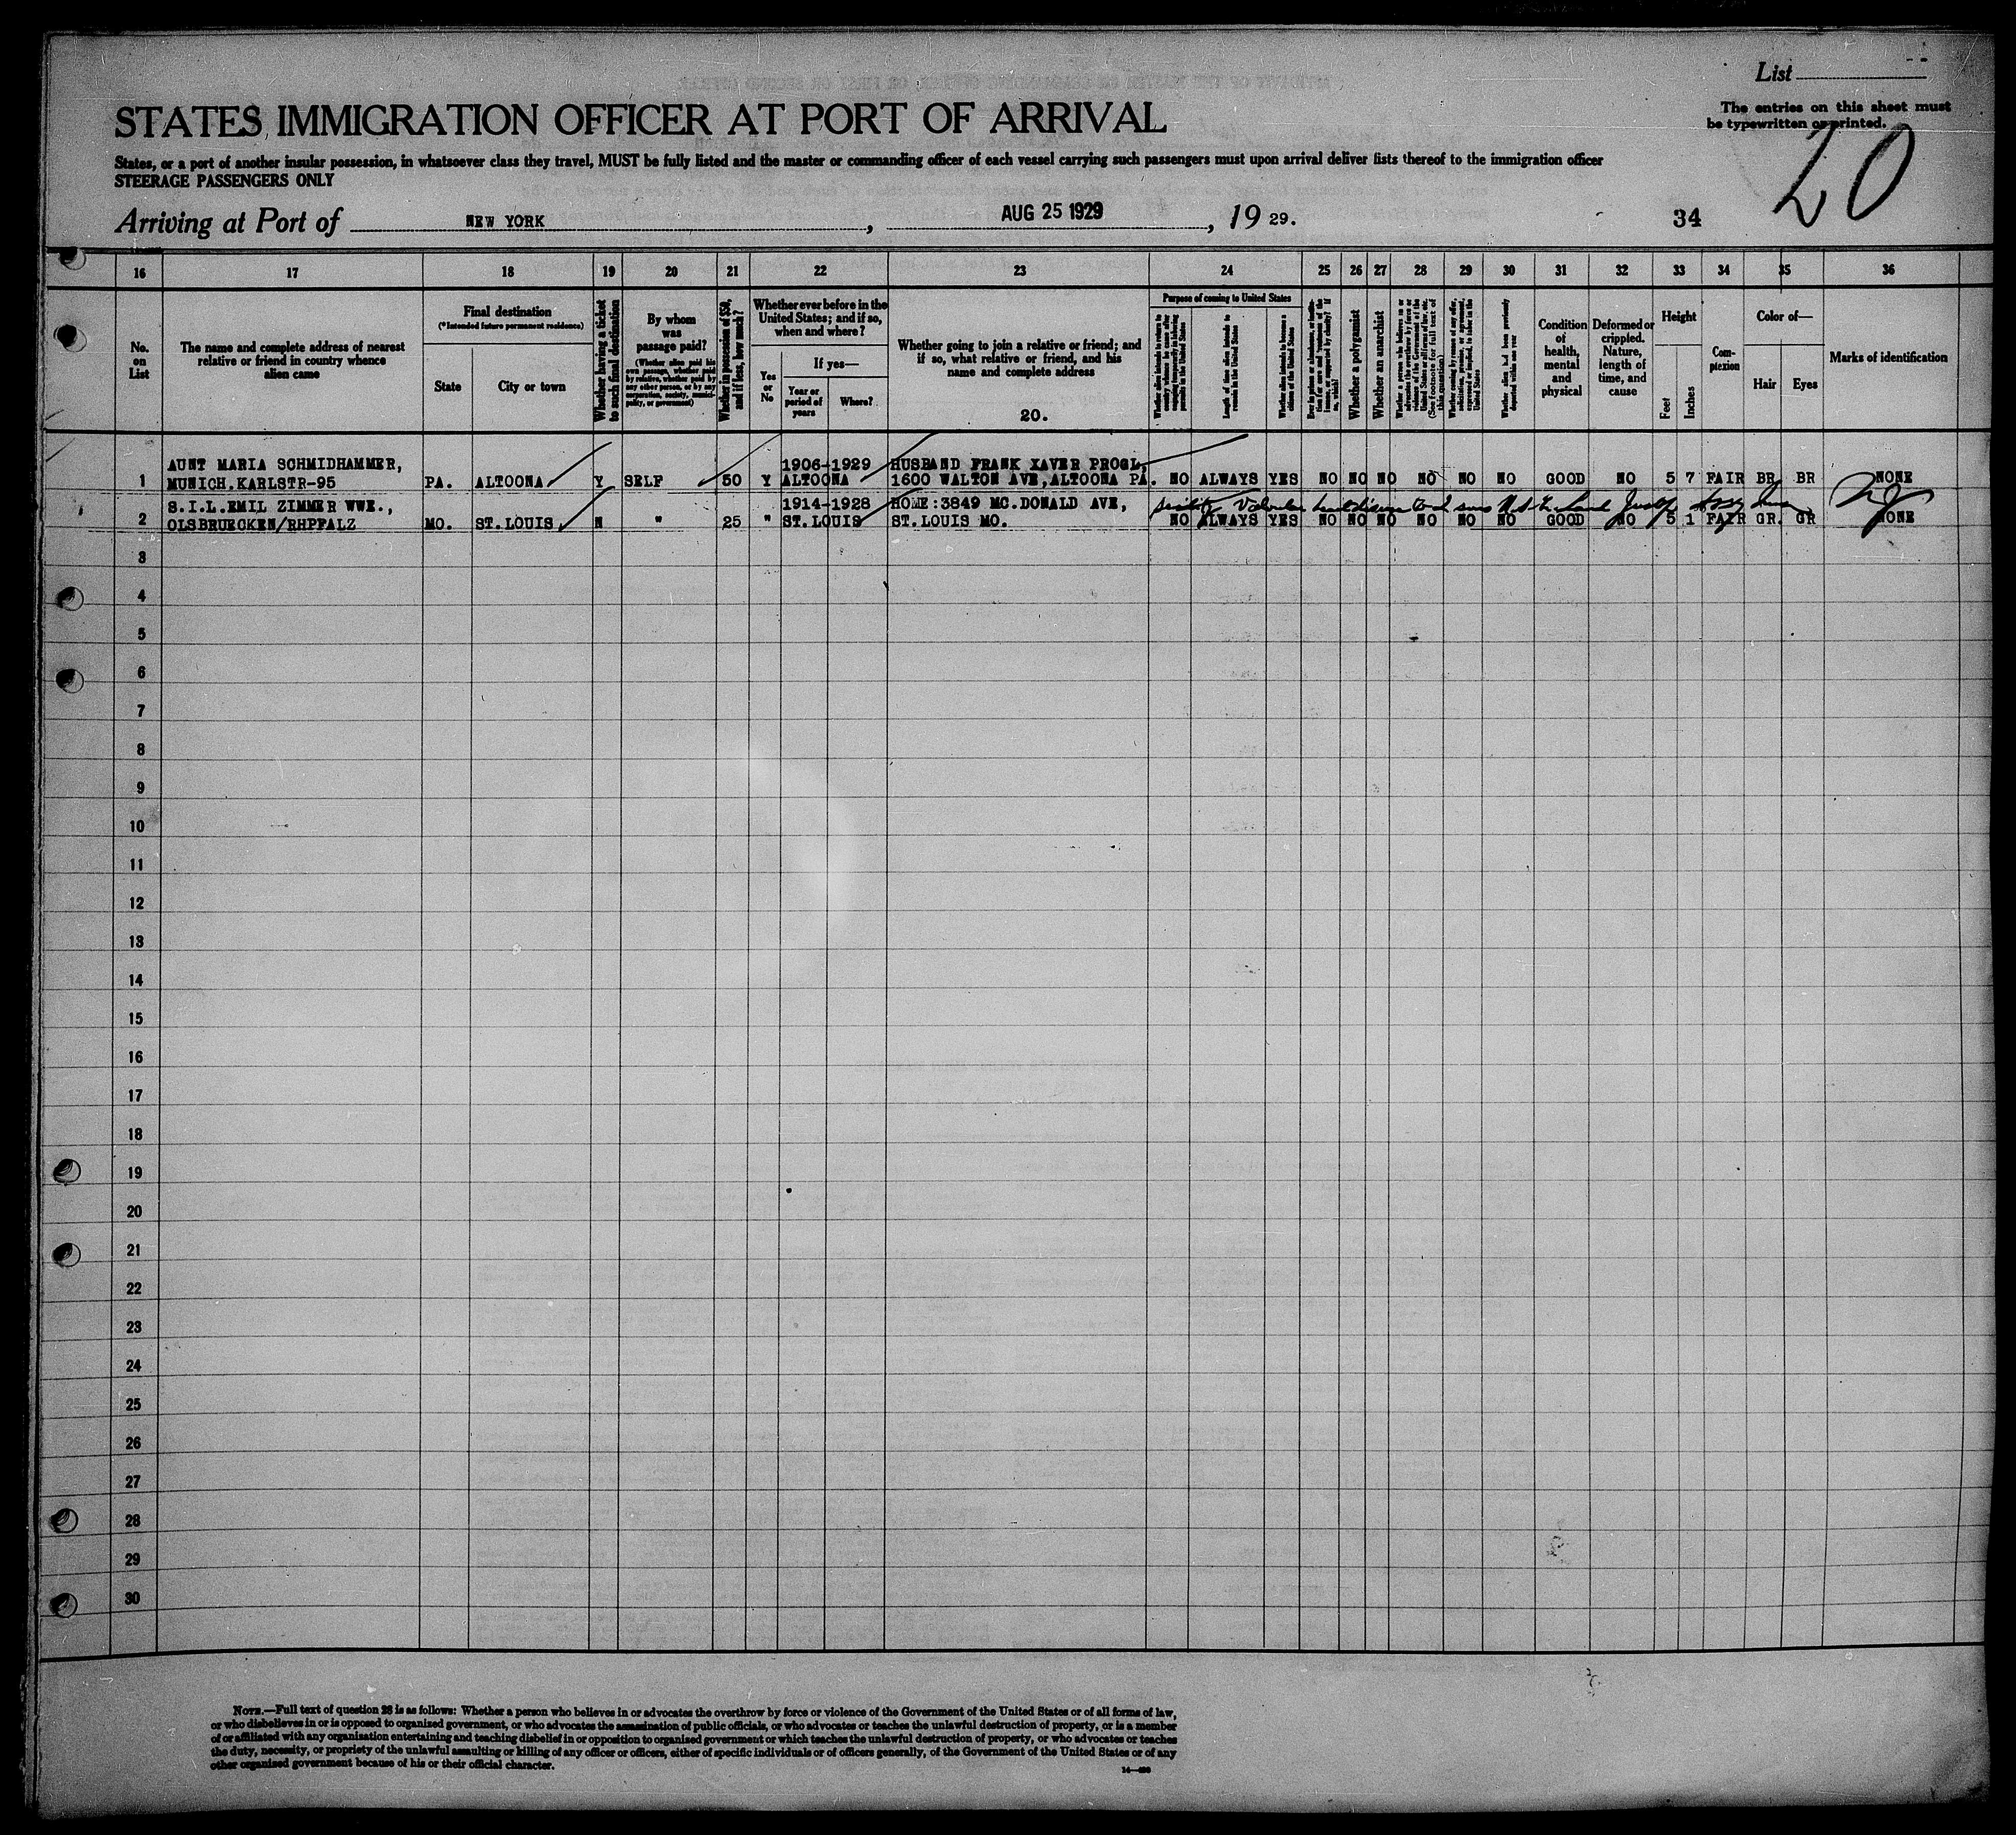 List
The entries on this sheet must
be typewritten or printed.
20
STATES IMMIGRATION OFFICER AT PORT OF ARRIVAL
States, or a port of another insular possession, in whatsoever class they travel, MUST be fully listed and the master or commanding officer of each vessel carrying such passengers must upon arrival deliver lists thereof to the immigration officer
STEERAGE PASSENGERS ONLY
Arriving at Port of NEW YORK, AUG 25 1929, 19 29. 34
16 17 18 19 20 21 22 23 24 25 26 27 28 29 30 31 32 33 34 35 36
No.
on
List
The name and complete address of nearest
relative or friend in country whence
alien came
Final destination
(*Intended future permanent residence)
State
City or town
Whether having a ticket
to such final destination
By whom
was
passage paid?
(Whether alien paid his
own passage, whether paid
by relative, whether paid by
any other person, or by any
corporation, society, munici-
pality, or government)
Whether in possession of $50,
and if less, how much?
Whether ever before in the
United States; and if so,
when and where?
Yes
or
No
If yes—
Year or
period of
years
Where?
Whether going to join a relative or friend; and
if so, what relative or friend, and his
name and complete address
20.
Purpose of coming to United States
Whether alien intends to return to
country whence he came after
engaging temporarily in laboring
pursuits in the United States
Length of time alien intends to
remain in the United States
Whether alien intends to become a
citizen of the United States
Ever in prison or almshouse, or institu-
tion for care and treatment of the
insane, or supported by charity? If
so, which?
Whether a polygamist
Whether an anarchist
Whether a person who believes in or
advocates the overthrow by force or
violence of the Government of the
United States or all forms of law, etc.
(See footnote for full text of
this question)
Whether coming by reason of any offer,
solicitation, promise, or agreement,
expressed or implied, to labor in the
United States
Whether alien had been previously
deported within one year
Condition
of
health,
mental
and
physical
Deformed or
crippled.
Nature,
length of
time, and
cause
Height
Feet
Inches
Com-
plexion
Color of—
Hair
Eyes
Marks of identification
AUNT MARIA SCHMIDHAMMER, 1906-1929 HUSBAND FRANK XAVER PROGL,
1 MUNICH.KARLSTR-95 PA. ALTOONA Y SELF 50 Y ALTOONA 1600 WALTON AVE,ALTOONA PA. NO ALWAYS YES NO NO NO NO NO NO GOOD NO 5 7 FAIR BR BR NONE
S.I.L.EMIL ZIMMER WWE., 1914-1928 HOME:3849 MC.DONALD AVE,
2 OLSBRUECKEN/RHPFALZ MO. ST.LOUIS N " 25 " ST.LOUIS ST.LOUIS MO. NO ALWAYS YES NO NO NO NO NO NO GOOD NO 5 1 FAIR GR. GR NONE
3
4
5
6
7
8
9
10
11
12
13
14
15
16
17
18
19
20
21
22
23
24
25
26
27
28
29
30
NOTE.—Full text of question 28 is as follows: Whether a person who believes in or advocates the overthrow by force or violence of the Government of the United States or of all forms of law,
or who disbelieves in or is opposed to organized government, or who advocates the assassination of public officials, or who advocates or teaches the unlawful destruction of property, or is a member
of or affiliated with any organization entertaining and teaching disbelief in or opposition to organized government or which teaches the unlawful destruction of property, or who advocates or teaches
the duty, necessity, or propriety of the unlawful assaulting or killing of any officer or officers, either of specific individuals or of officers generally, of the Government of the United States or of any
other organized government because of his or their official character.